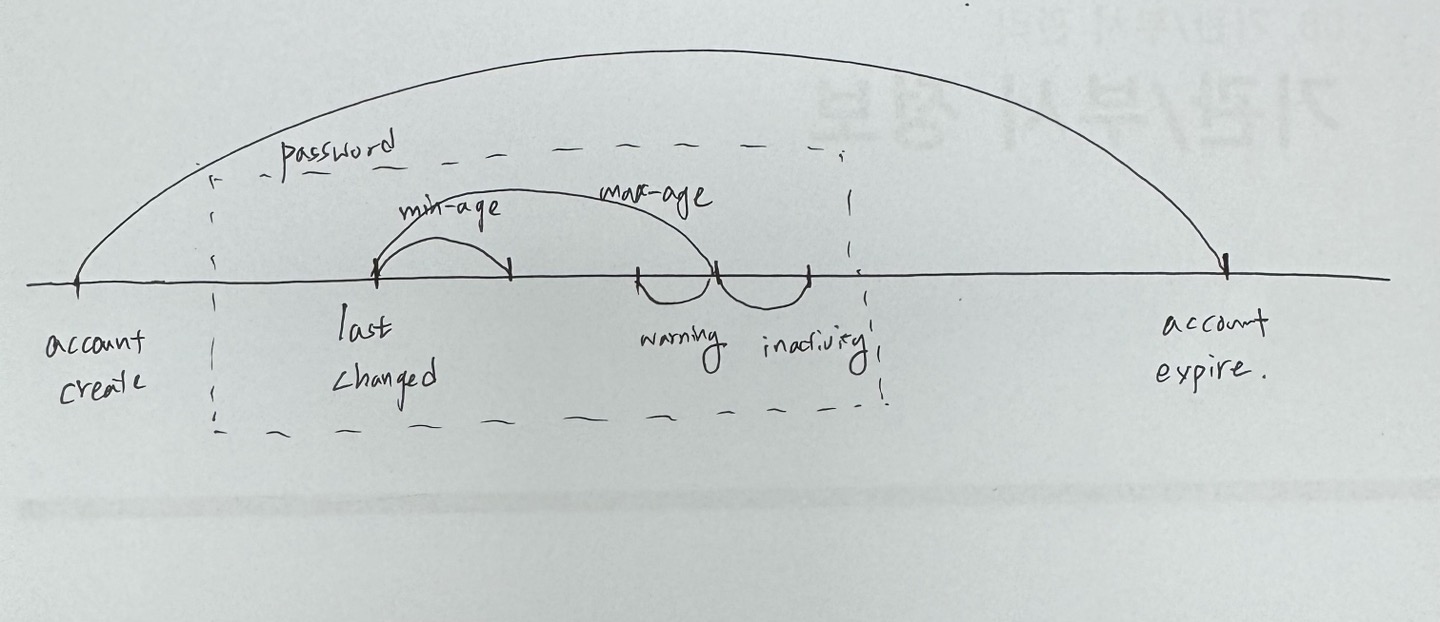 password
min-age
max-age
account
create
last
changed
warning
inactivity
account
expire.
기관/부서 정보